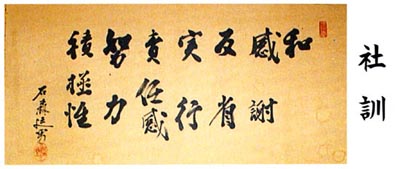 社訓
和
感謝
反省
実行
責任感
努力
積極性